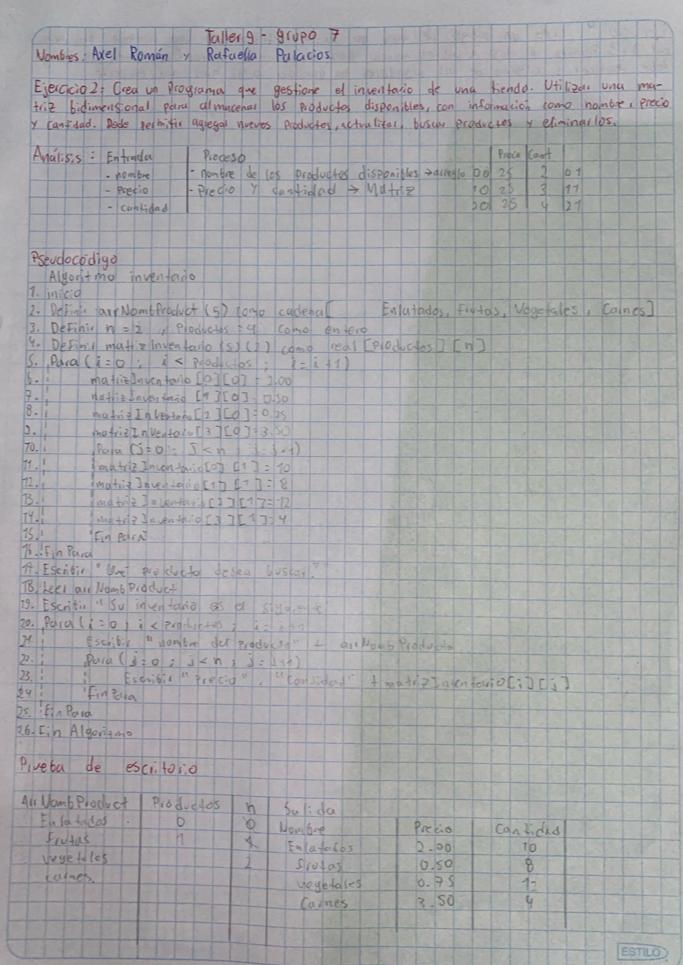 Taller 9 - grupo 7
Nombres: Axel Román y Rafaella Palacios
Ejercicio 2: Crea un Programa que gestione el inventario de una tienda. Utilizar una ma-
triz bidimensional para almacenar los productos disponibles, con información como nombre, precio
y cantidad. Debe permitir agregar nuevos productos, actualizar, buscar productos y eliminarlos.
Análisis: Entrada Proceso Precio Cant
- nombre - nombre de los productos disponibles → arreglo 00 25 2 01
- Precio - Precio y cantidad → Matriz 10 25 3 11
- cantidad 20 25 4 21
Pseudocódigo
Algoritmo inventario
1. inicio
2. Definir arrNombProduct (5) como cadena [ Enlatados, Frutas, Vegetales, Carnes]
3. Definir n = 2 , Productos = 4 como entero
4. Definir matrizInventario (5) (2) como real [productos] [n]
5. Para (i=0 ; i < productos ; i = i+1)
6. matrizInventario [0] [0] = 2.00
7. matrizInventario [1] [0] = 0.50
8. matrizInventario [2] [0] = 0.75
9. matrizInventario [3] [0] = 3.50
10. Para (j=0 ; j < n ; j = j+1)
11. matrizInventario [0] [1] = 10
12. matrizInventario [1] [1] = 8
13. matrizInventario [2] [1] = 12
14. matrizInventario [3] [1] = 4
15. Fin Para
16. Fin Para
17. Escribir "Que producto desea buscar"
18. Leer arrNombProduct
19. Escribir "Su inventario es el siguiente"
20. Para (i=0 ; i < productos ; i = i+1)
21. Escribir "nombre del producto" + arrNombProducto
22. Para (j=0 ; j < n ; j = j+1)
23. Escribir "precio", "Cantidad" + matrizInventario [i] [j]
24. Fin Para
25. Fin Para
26. Fin Algoritmo
Prueba de escritorio
ArrNombProduct Productos n Salida
Enlatados 0 0 Nombre Precio Cantidad
Frutas 1 1 Enlatados 2.00 10
vegetales 2 Frutas 0.50 8
carnes vegetales 0.75 12
Carnes 3.50 4
ESTILO